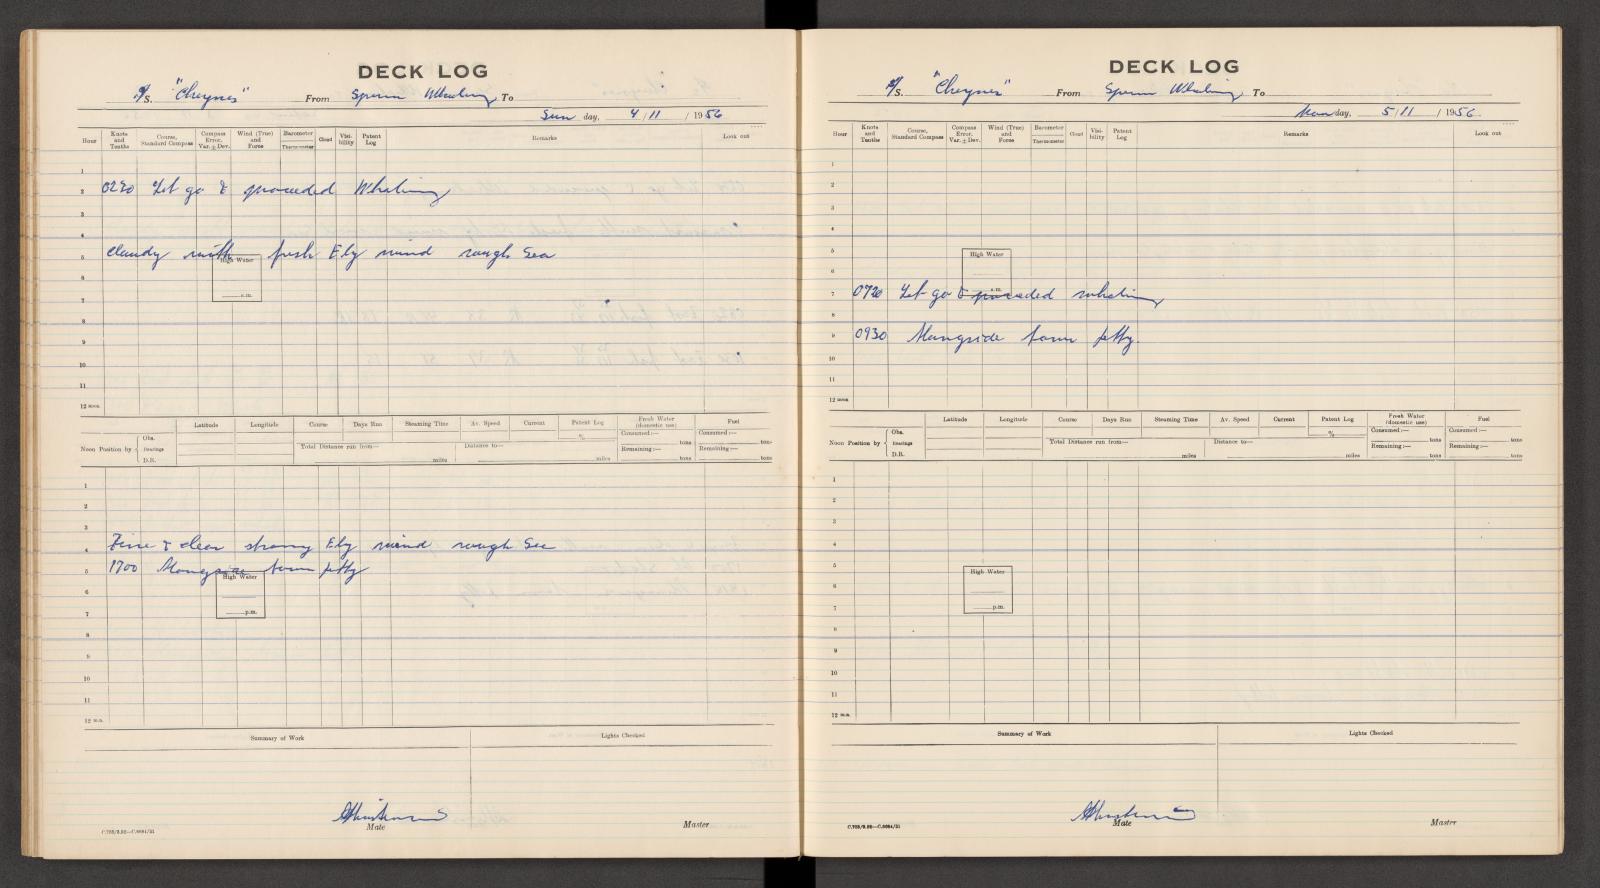 DECK LOG
S. "Cheynes" From Sperm Whaling To
Sun day, 4/11/1956
Hour Knots and Tenths Course, Standard Compass Compass Error. Var. ± Dev. Wind (True) and Force Barometer Thermometer Cloud Visibility Patent Log Remarks Look out
1
2 0220 Let go & proceeded Whaling
3
4
5 cloudy with fresh Ely wind rough Sea
High Water
6
a.m.
7
8
9
10
11
12 noon
Latitude Longitude Course Days Run Steaming Time Av. Speed Current Patent Log Fresh Water (domestic use) Fuel
Noon Position by { Obs. Bearings D.R. Total Distance run from— miles Distance to— miles % Consumed:— tons Remaining:— tons Consumed:— tons Remaining:— tons
1
2
3
4 Fine & clear strong Ely wind rough Sea
5 1700 Alongside town jetty
High Water
6
p.m.
7
8
9
10
11
12 m.n.
Summary of Work Lights Checked
Mate Master
C.722/3.52—C.6684/51
DECK LOG
S. "Cheynes" From Sperm Whaling To
Mon day, 5/11/1956.
Hour Knots and Tenths Course, Standard Compass Compass Error. Var. ± Dev. Wind (True) and Force Barometer Thermometer Cloud Visibility Patent Log Remarks Look out
1
2
3
4
5
High Water
6
a.m.
7 0720 Let go & proceeded whaling
8
9 0930 Alongside town jetty.
10
11
12 noon
Latitude Longitude Course Days Run Steaming Time Av. Speed Current Patent Log Fresh Water (domestic use) Fuel
Noon Position by { Obs. Bearings D.R. Total Distance run from— miles Distance to— miles % Consumed:— tons Remaining:— tons Consumed:— tons Remaining:— tons
1
2
3
4
5
High Water
6
p.m.
7
8
9
10
11
12 m.n.
Summary of Work Lights Checked
Mate Master